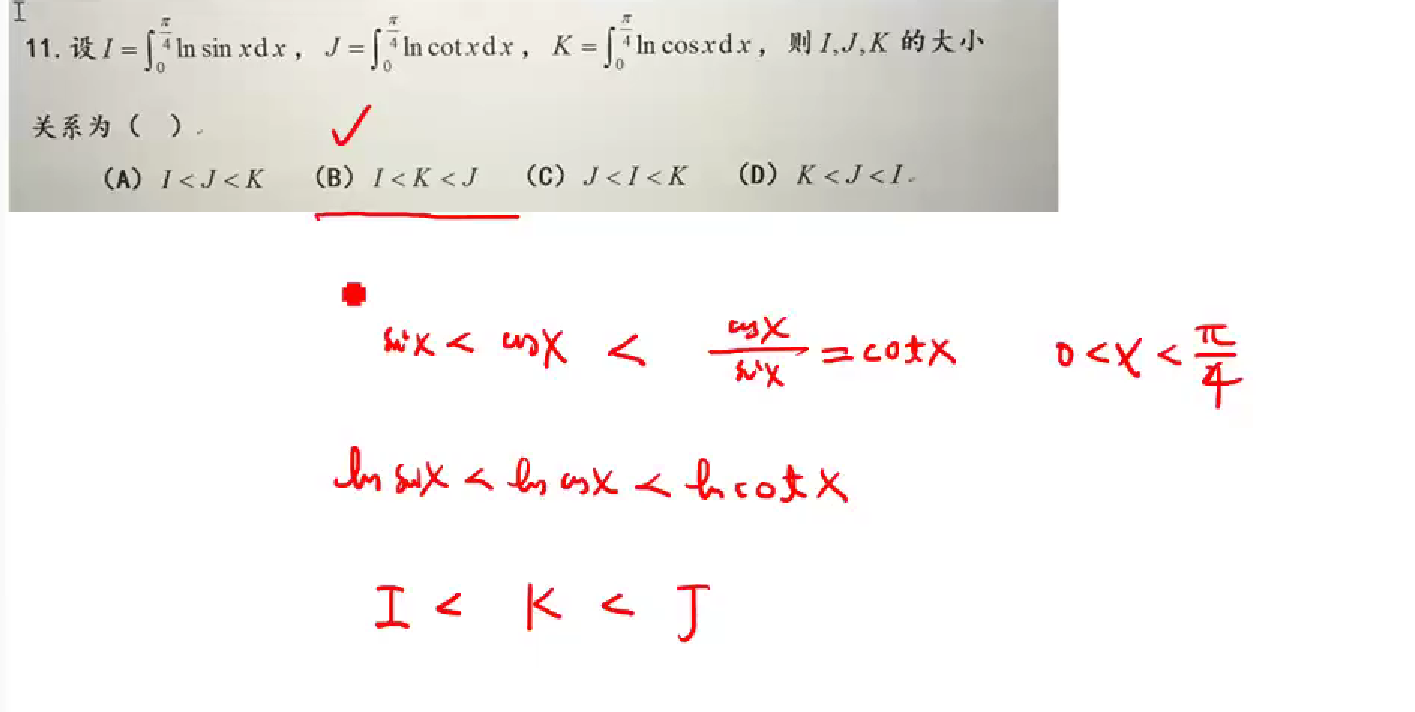 11. 设 I = ∫₀^{π/4} ln sin x dx, J = ∫₀^{π/4} ln cot x dx, K = ∫₀^{π/4} ln cos x dx, 则 I, J, K 的大小
关系为 ( ).
(A) I < J < K (B) I < K < J (C) J < I < K (D) K < J < I.
sin x < cos x < \frac{cos x}{sin x} = cot x 0 < x < \frac{π}{4}
ln sin x < ln cos x < ln cot x
I < K < J